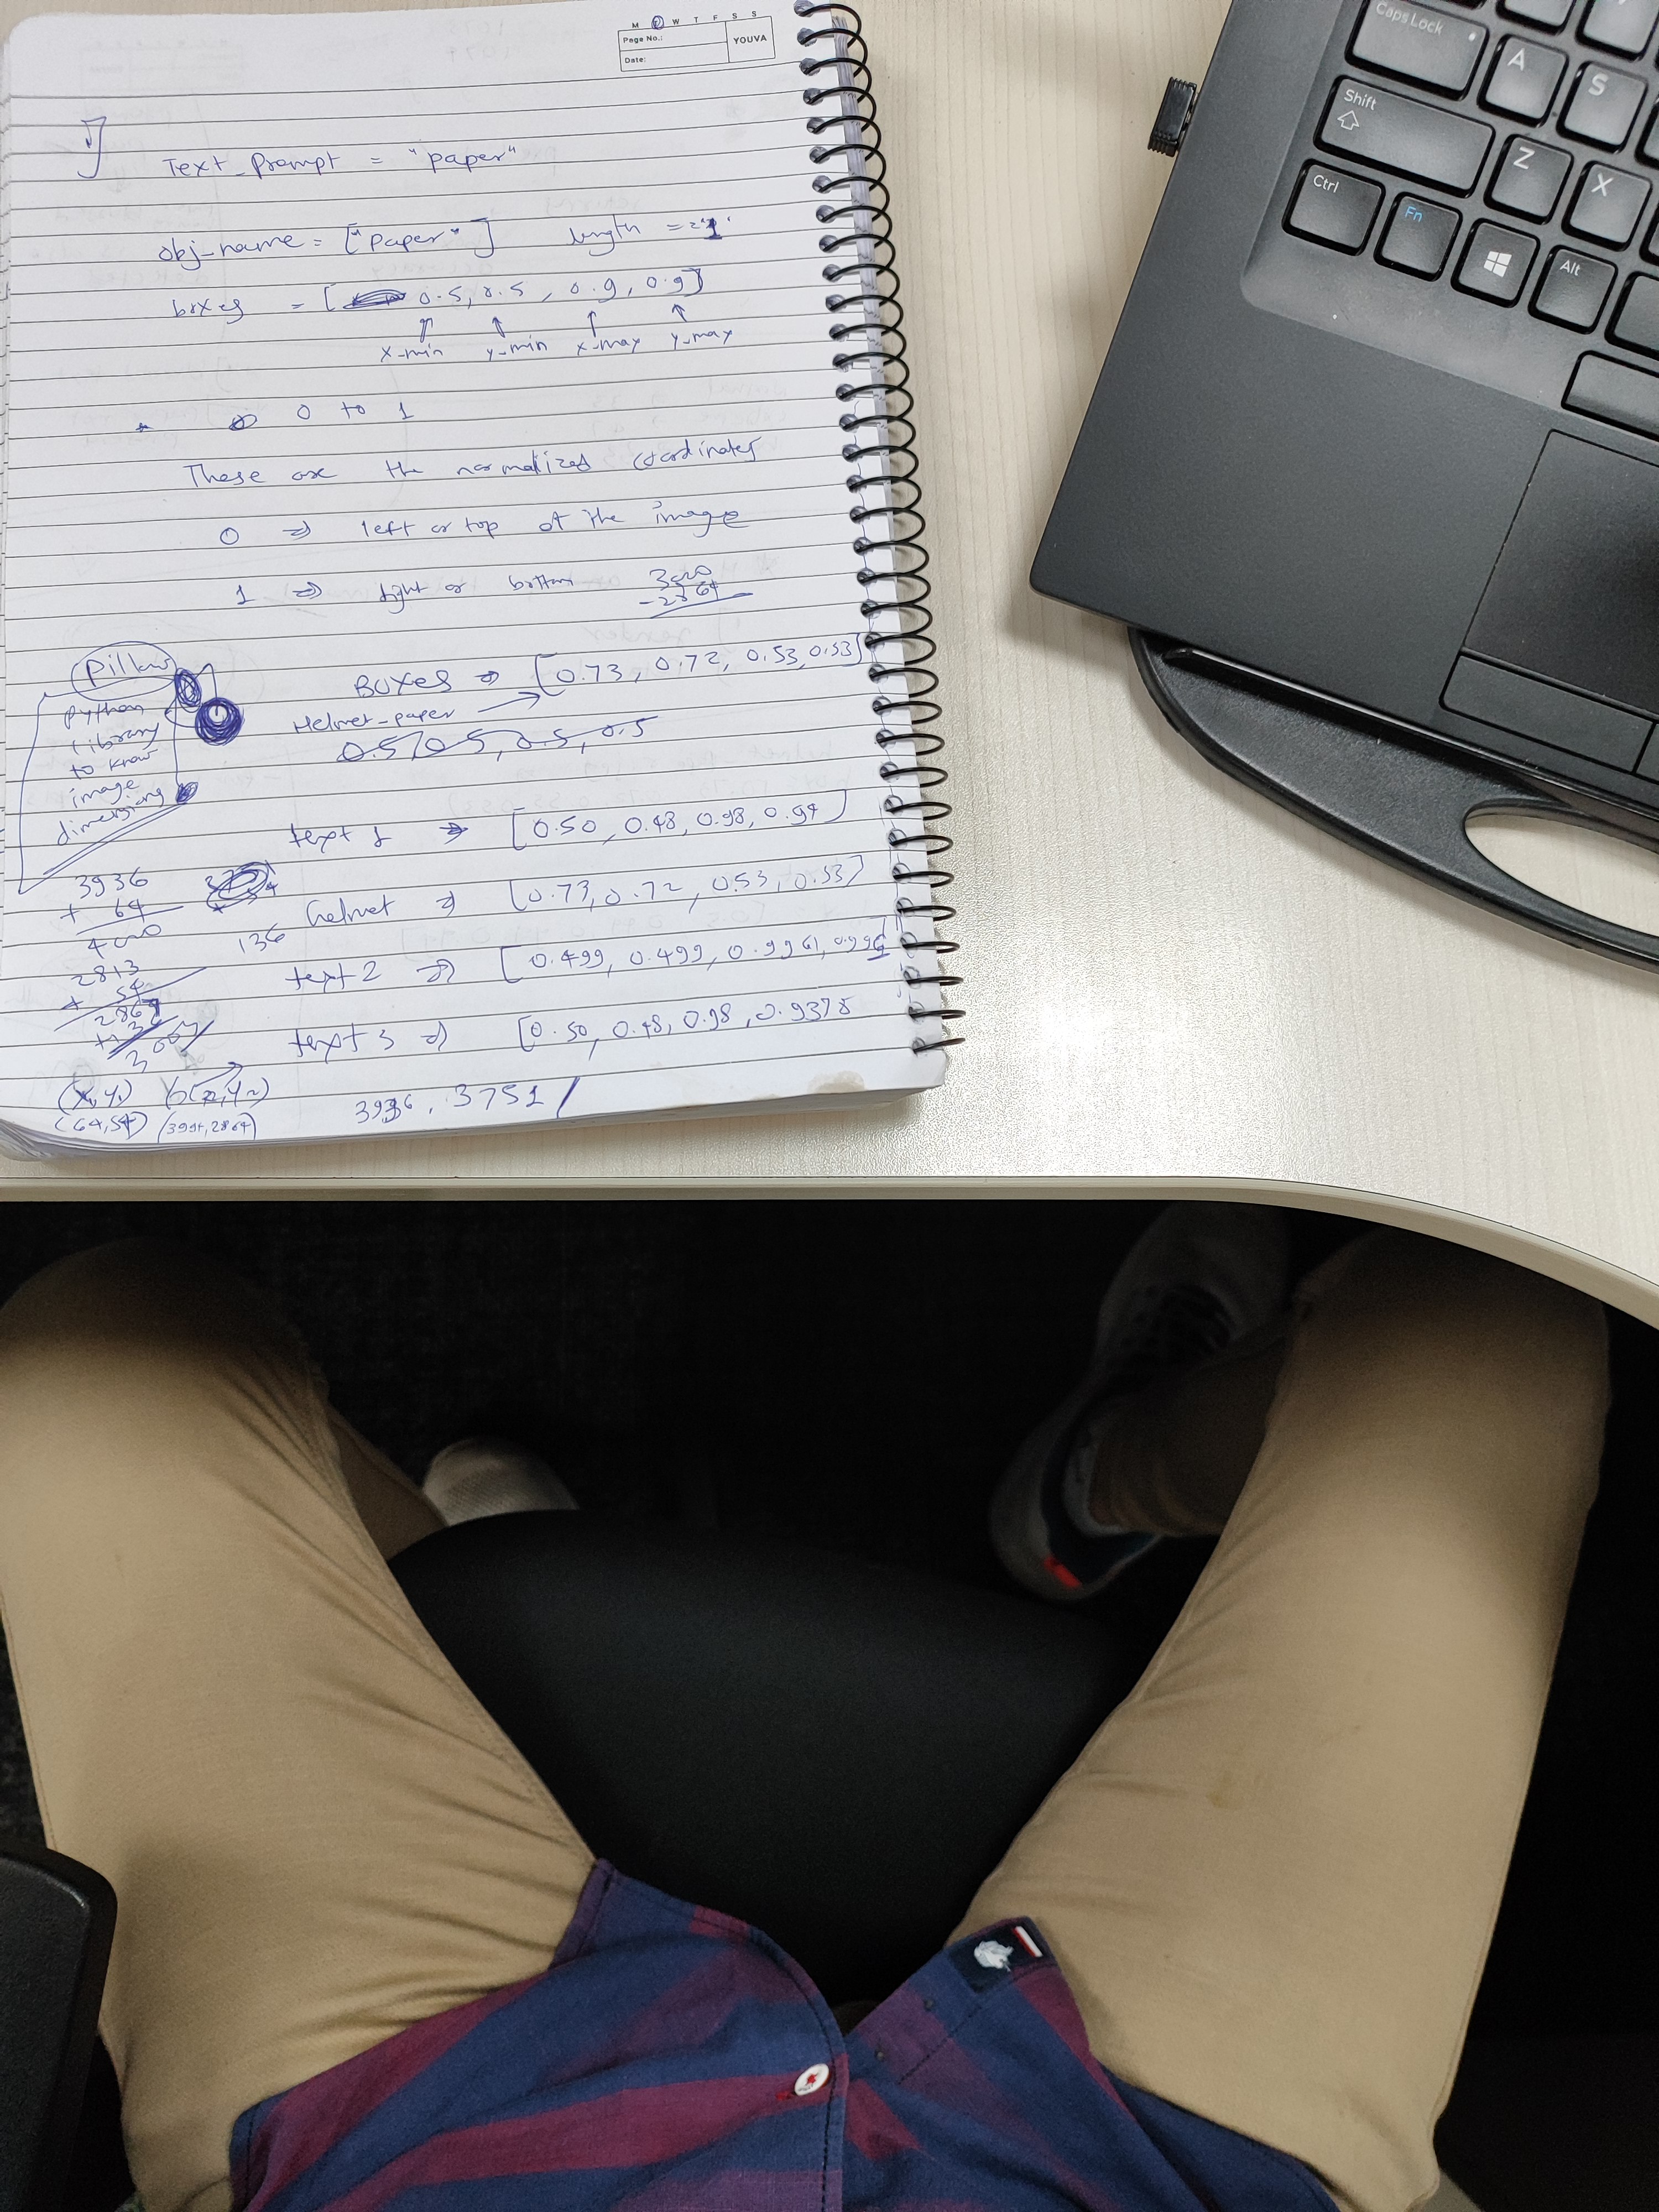 M T W T F S S
Page No.:
YOUVA
Date:
Text_Prompt = "paper"
obj_name = ["paper"] length = "1"
boxes = [ 0.5, 0.5, 0.9, 0.9]
x_min y_min x_max y_max
* 0 to 1
These are the normalized coordinates
0 => left or top of the image
1 => right or bottom
3000
- 2864
Pillow
python
library
to know
image
dimensions
BOXES => [0.73, 0.72, 0.53, 0.53]
Helmet_paper
0.5, 0.5, 0.5, 0.5
text 1 => [0.50, 0.48, 0.98, 0.94]
helmet => [0.73, 0.72, 0.53, 0.53]
text 2 => [0.499, 0.499, 0.9961, 0.996]
text 3 => [0.50, 0.48, 0.98, 0.9378
3936
+ 64
4000
136
2813
+ 54
2867
(x, y,)
(64, 54) (3994, 2864)
3936, 3751
Caps Lock
A
S
Shift
Z
X
Ctrl
Fn
Alt